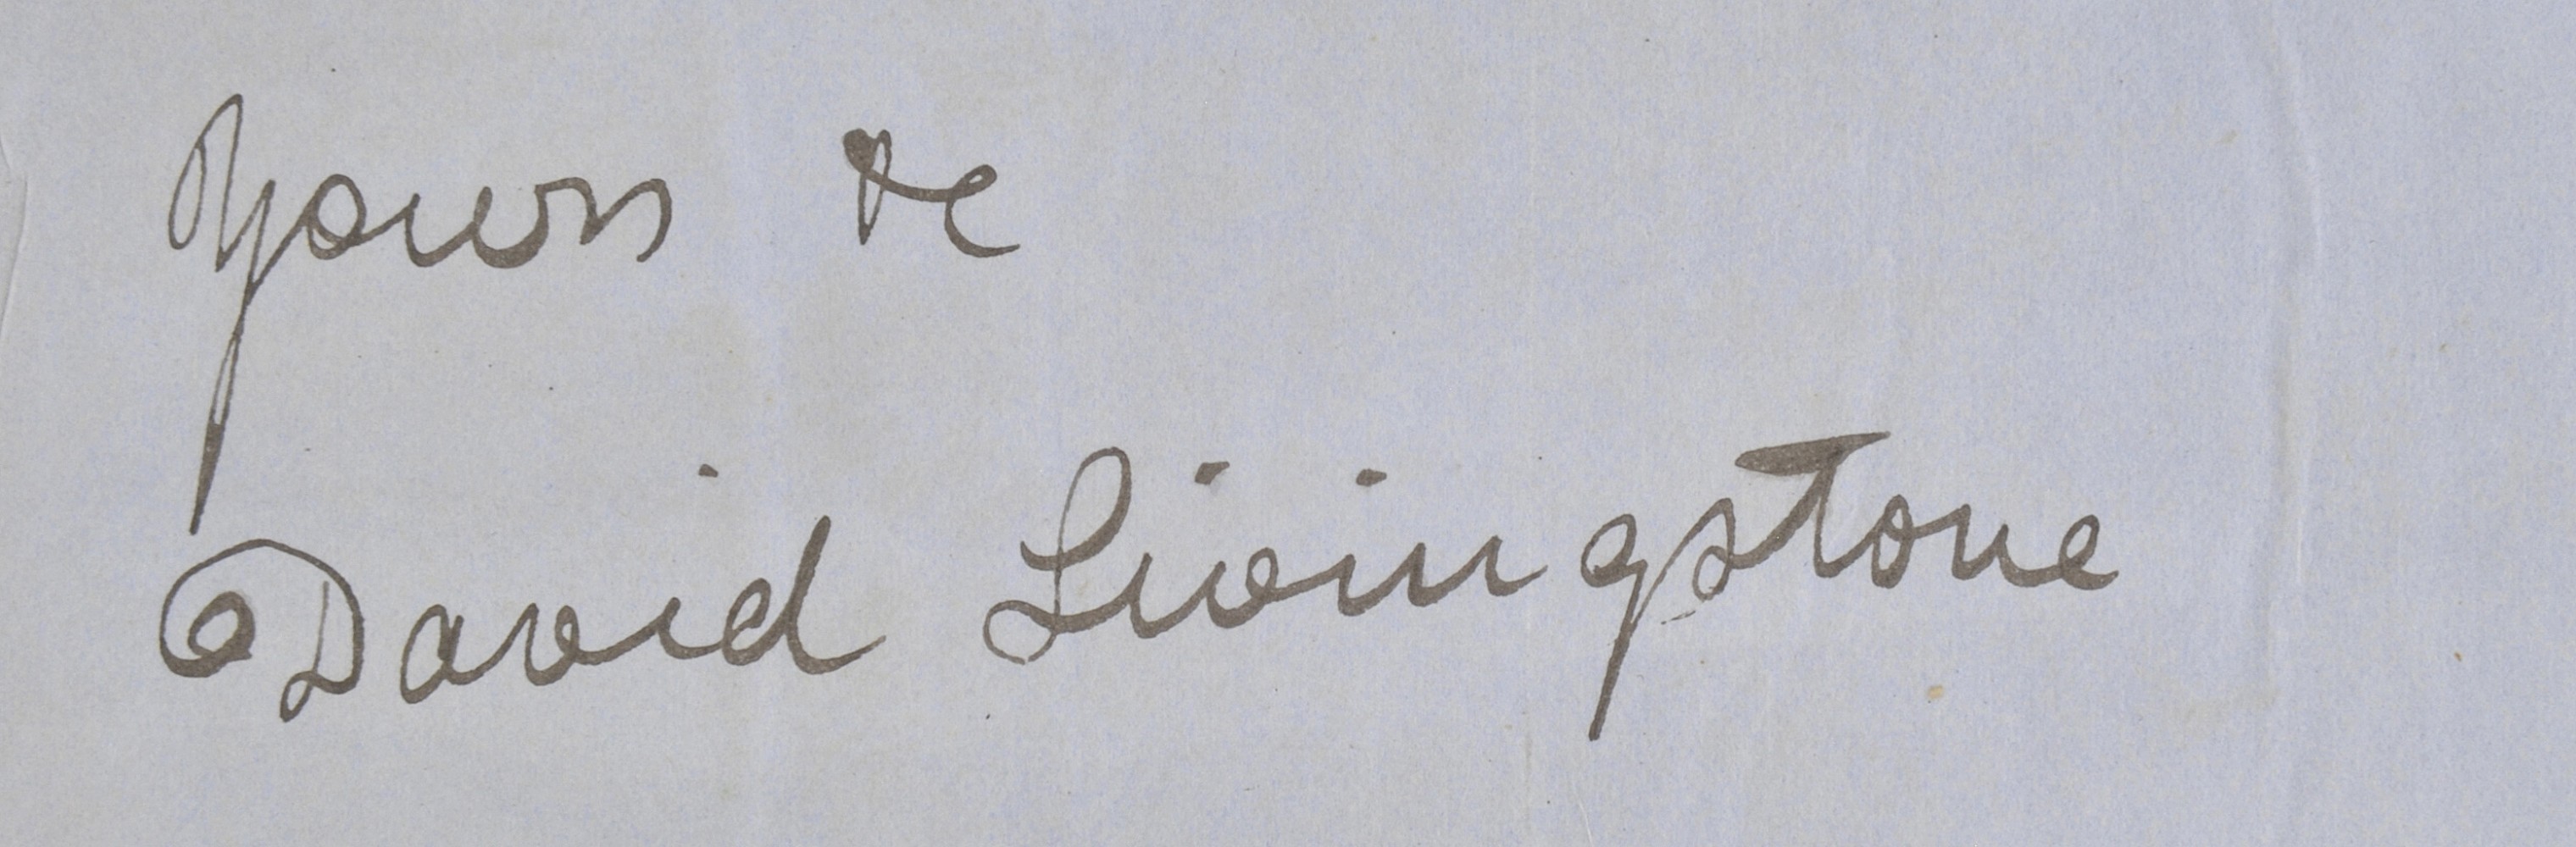 Yours &c
David Livingstone